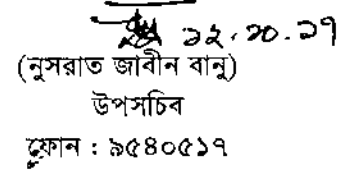 ১২.১০.১৭
(নুসরাত জাবীন বানু)
উপসচিব
ফোন : ৯৫৪০৫১৭